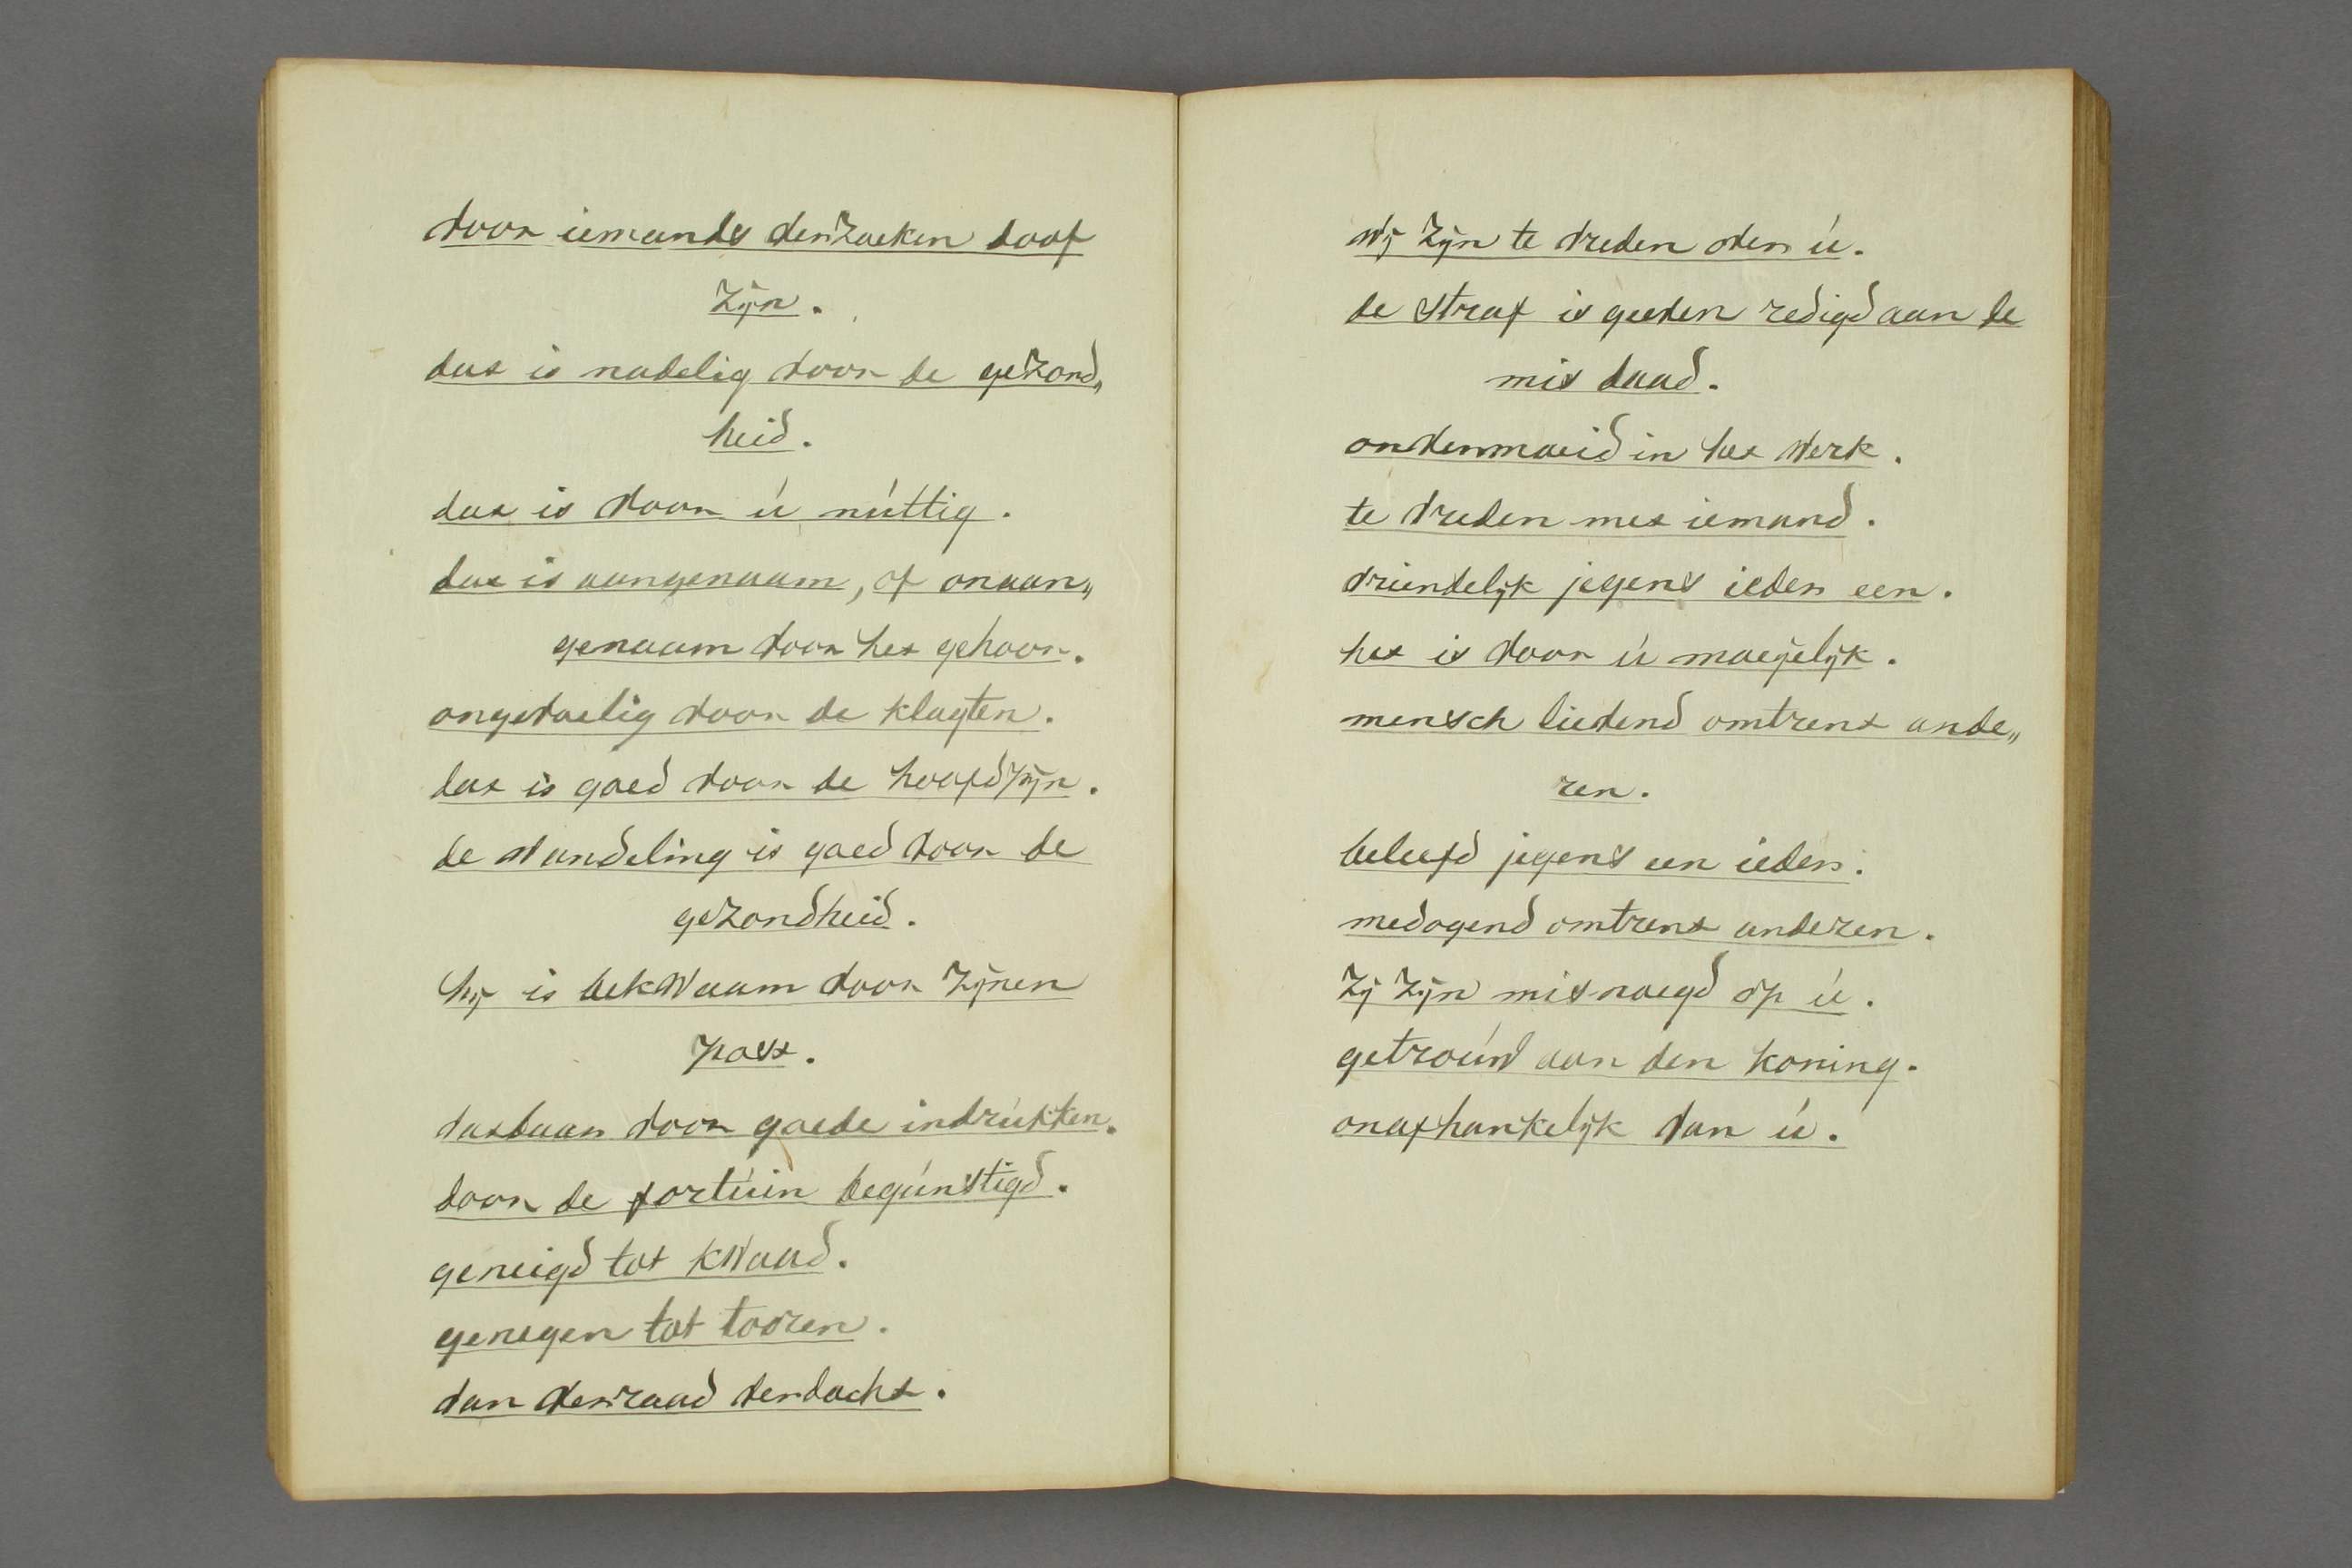 voor iemands verzoeken doof
zijn.
dat is nadelig voor de gezond„
heid.
dat is voor ú núttig.
dat is aangenaam, of onaan„
genaam voor het gehoor.
ongevoelig voor de klagten.
dat is goed voor de hoofdpijn.
de wandeling is goed voor de
gezondheid.
hij is bekwaam voor zijnen
post.
vatbaar voor goede indrúkken.
door de fortúin begúnstigd.
geneigd tot kwaad.
genegen tot tooren.
van verraad verdacht.
wij zijn te vreden over ú.
de straf is geëven redigd aan de
mis daad.
onvermoeid in het werk.
te vreden met iemand.
vriendelijk jegens ieder een.
het is voor ú moeijelijk.
mensch lievend omtrent ande„
ren.
beleefd jegens een ieder.
medogend omtrent anderen.
zij zijn misnoegd op ú.
getroúw aan den koning.
onafhankelijk van ú.